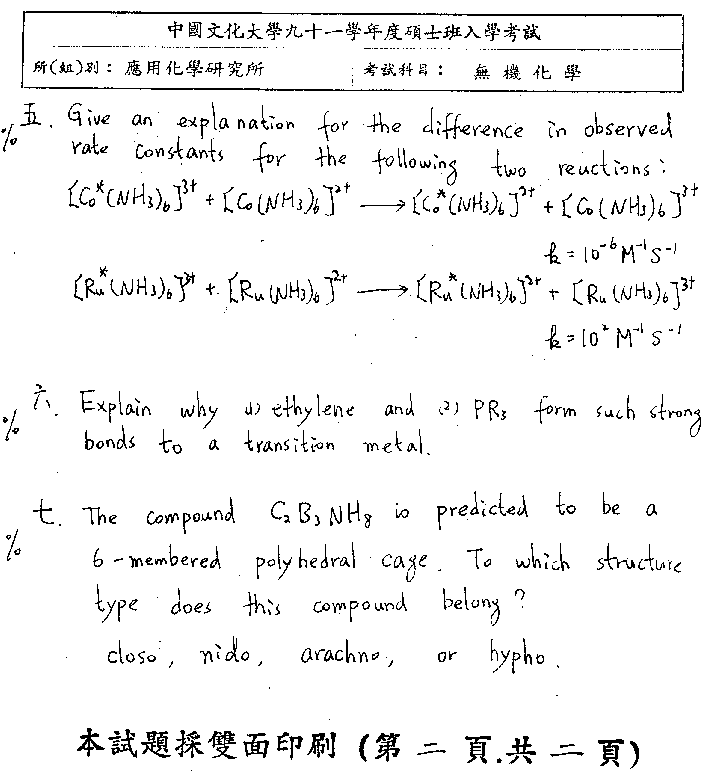 中國文化大學九十一學年度碩士班入學考試
所(組)別：應用化學研究所 考試科目： 無機化學
% 五. Give an explanation for the difference in observed
rate constants for the following two reactions:
[Co*(NH3)6]3+ + [Co(NH3)6]2+ → [Co*(NH3)6]2+ + [Co(NH3)6]3+
k=10-6 M-1 S-1
[Ru*(NH3)6]3+ + [Ru(NH3)6]2+ → [Ru*(NH3)6]2+ + [Ru(NH3)6]3+
k=102 M-1 S-1
% 六. Explain why (1) ethylene and (2) PR3 form such strong
bonds to a transition metal.
% 七. The compound C2B3NH8 is predicted to be a
6-membered polyhedral cage. To which structure
type does this compound belong?
closo, nido, arachno, or hypho.
本試題採雙面印刷 (第 二 頁.共 二 頁)